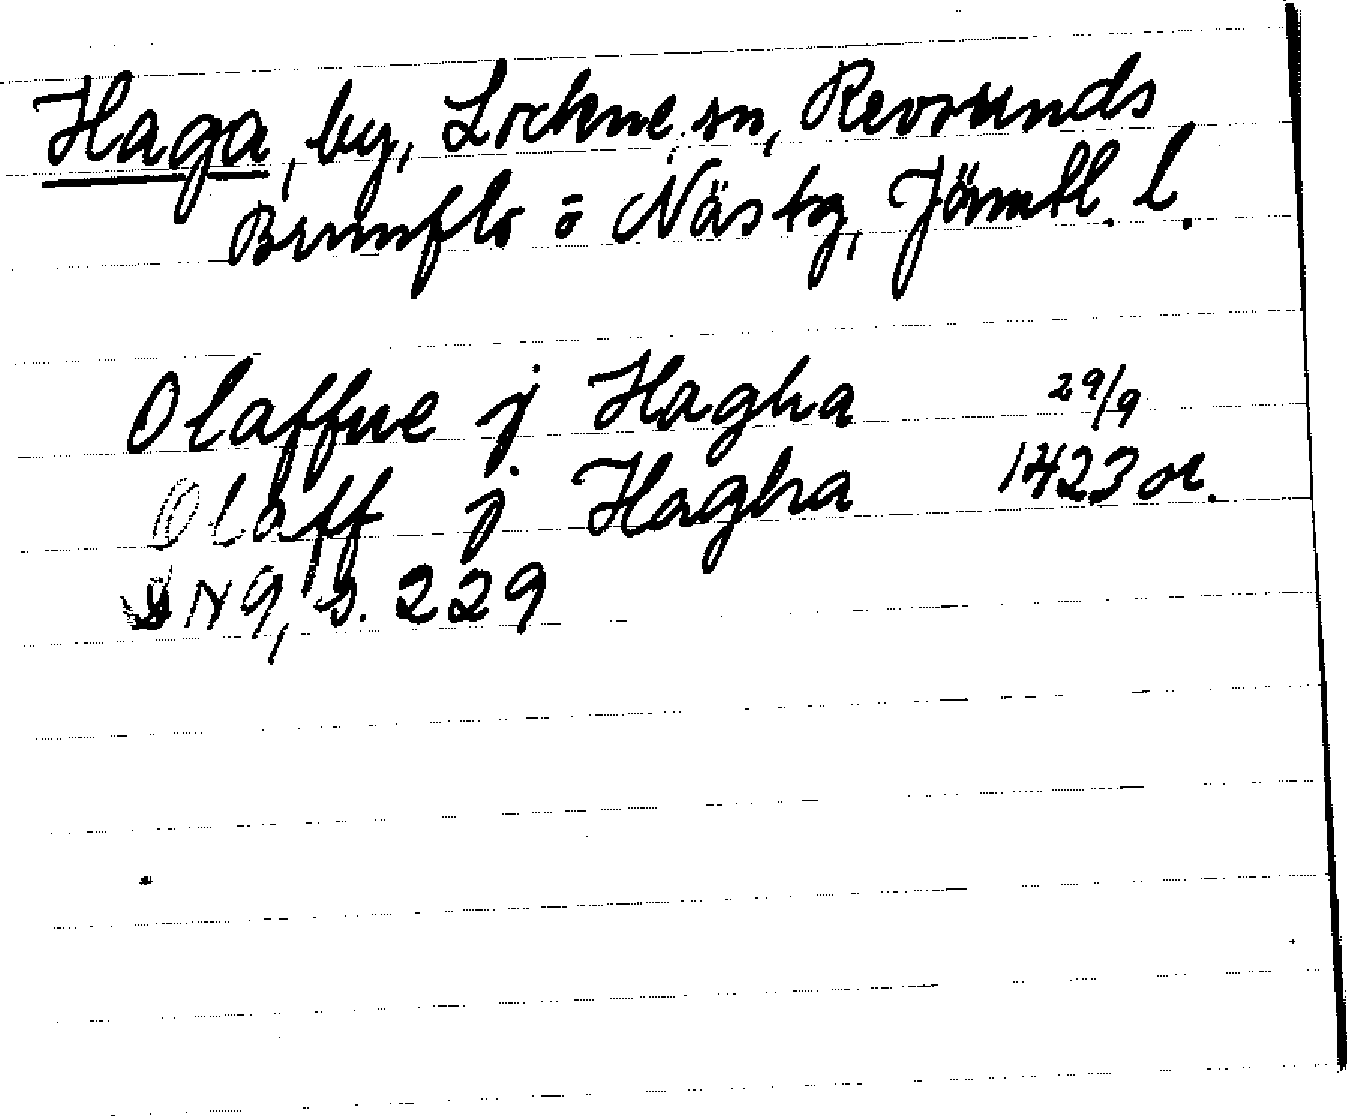 Haga, by, Lockne sn, Revsunds
Brunflo o Näs tg, Jämtl. l.
Olaffue j Hagha 29/9
Olaff j Hagha 1423 or.
DN 9, s. 229